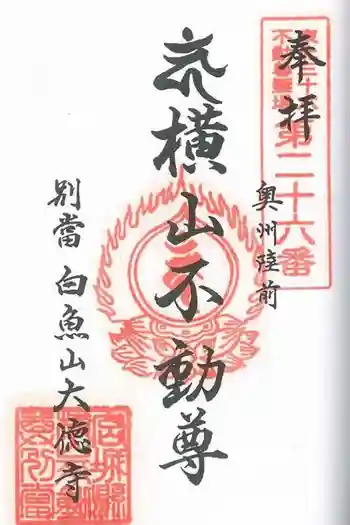 奉拝
第二十六番
奥州陸前
横山不動尊
別當 白魚山大徳寺